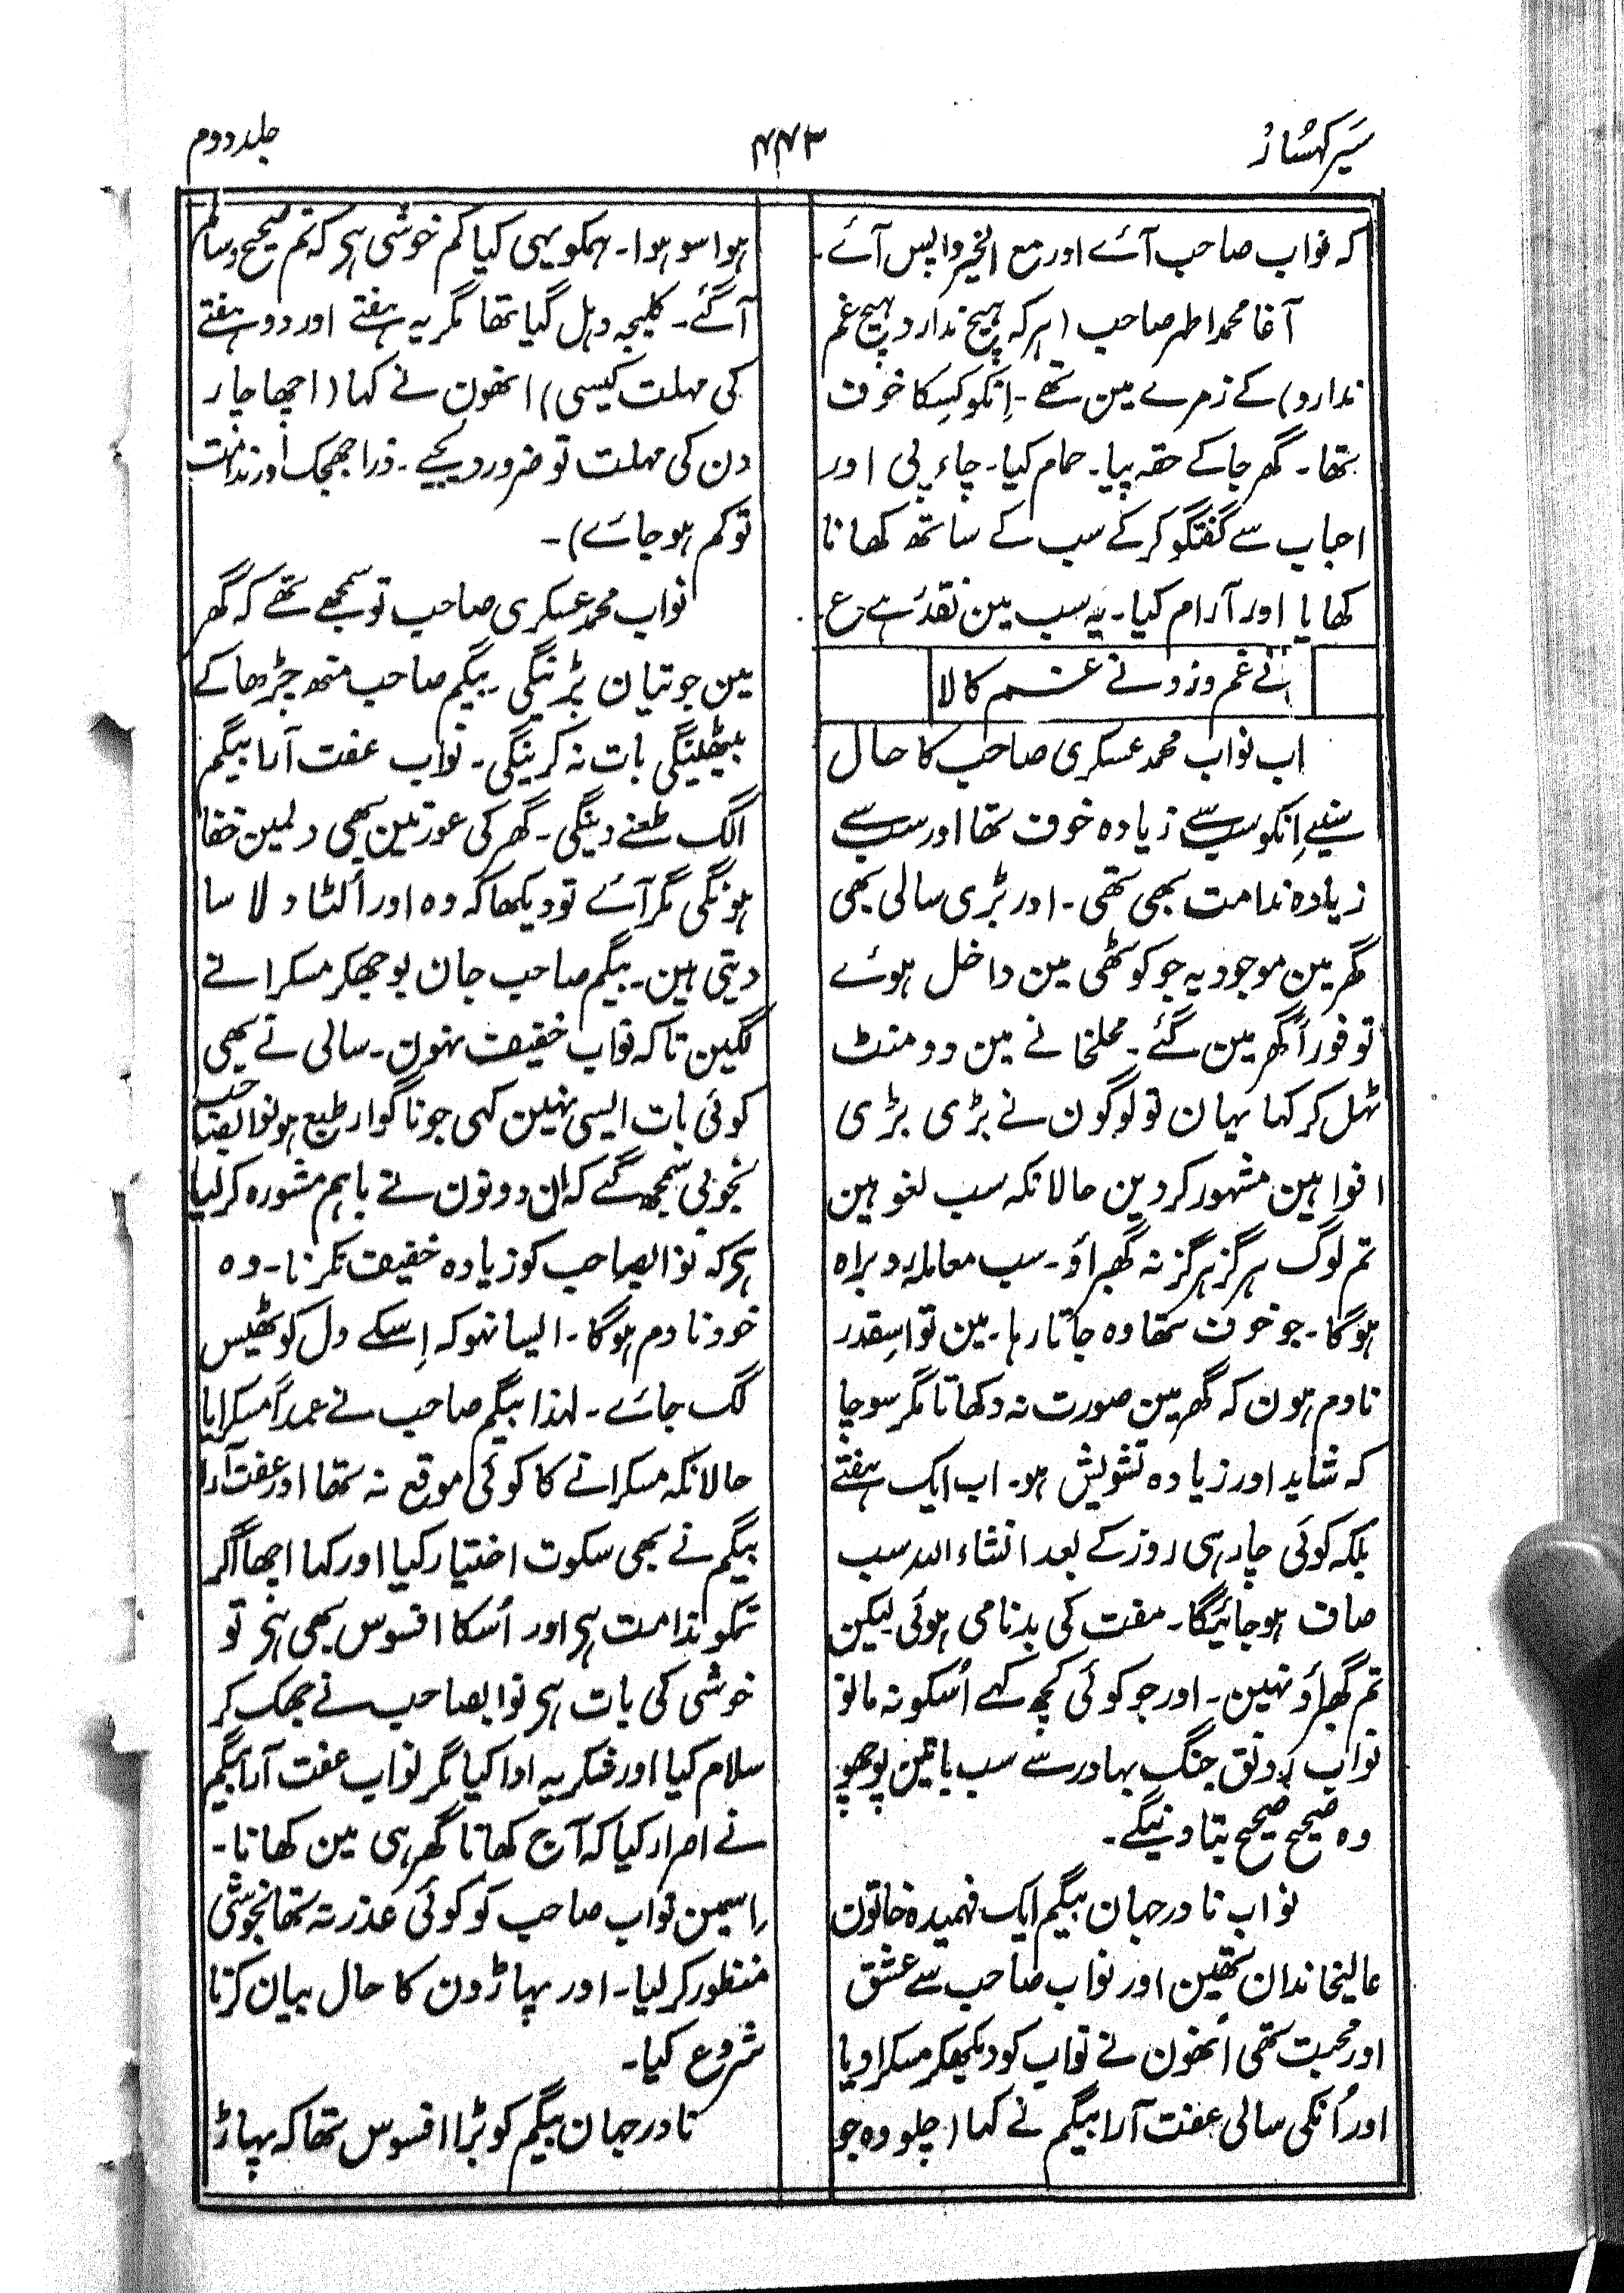 سیر کہسار
۴۴۳
جلد دوم
کہ نواب صاحب آئے اور مع الخیر واپس آئے۔
آغا محمد اطہر صاحب (ہرکہ ہیچ ندارد ہیچ غم
ندارد) کے زمرے مین تھے۔ اِنکو کسِکا خوف
تھا۔ گھر جا کے حقہ پیا۔ حمام کیا۔ چاء پی اور
احباب سے گفتگو کر کے سب کے ساتھ کھانا
کھایا اور آرام کیا۔ یہ سب مین نقد ہے ع۔
نے غم دزد نے غم کالا
اب نواب محمد عسکری صاحب کا حال
سنیے اِنکو سب سے زیادہ خوف تھا اور سب سے
زیادہ ندامت بھی تھی۔ اور بڑی سالی بھی
گھر مین موجود یہ جو کوٹھی مین داخل ہوئے
تو فوراً گھر مین گئے۔ محلخانے مین دو منٹ
ٹہل کر کہا یہان تو لوگون نے بڑی بڑی
افواہین مشہور کر دین حالانکہ سب لغو ہین
تم لوگ ہرگز ہرگز نہ گھبراؤ۔ سب معاملہ روبراہ
ہوگا۔ جو خوف تھا وہ جاتا رہا۔ مین تو اسِقدر
نادم ہون کہ گھر مین صورت نہ دکھاتا مگر سوچا
کہ شاید اور زیادہ تشویش ہو۔ اب ایک ہفتے
بلکہ کوئی چار ہی روز کے بعد انشاء اللہ سب
صاف ہو جائیگا۔ مفت کی بدنامی ہوئی لیکن
تم گھبراؤ نہین۔ اور جو کوئی کچھ کہے اُسکو نہ مانو
نواب رونق جنگ بہادر سے سب باتین پوچھو
وہ صحیح صحیح بتا دینگے۔
نواب نادر جہان بیگم ایک فہمیدہ خاتون
عالیخاندان تھین اور نواب صاحب سے عشق
اور محبت تھی اُنھون نے نواب کو دیکھکر مسکرا دیا
اور اُنکی سالی عفت آرا بیگم نے کہا (چلو وہ جو
ہوا سو ہوا۔ ہمکو یہی کیا کم خوشی ہی کہ تم صحیح و سالم
آ گئے۔ کلیجہ دہل گیا تھا مگر یہ ہفتے اور دو ہفتے
کی مہلت کیسی) انھون نے کہا (اچھا چار
دن کی مہلت تو ضرور دیجیے۔ ذرا جھجک اور ندامت
تو کم ہو جائے)۔
نواب محمد عسکری صاحب تو سمجھے تھے کہ گھر
مین جوتیان پڑینگی۔ بیگم صاحب منھ چڑھا کے
بیٹھینگی بات نہ کرینگی۔ نواب عفت آرا بیگم
الگ طعنے دینگی۔ گھر کی عورتین بھی دلمین خفا
ہونگی مگر آئے تو دیکھا کہ وہ اور اُلٹا دلاسا
دیتی ہین۔ بیگم صاحب جان بوجھکر مسکرانے
لگین تاکہ نواب خفیف نہون۔ سالی نے بھی
کوئی بات ایسی نہین کہی جو ناگوار طبع ہو نوابصاحب
بخوبی سمجھ گئے کہ اِن دونون نے باہم مشورہ کر لیا
ہی کہ نوابصاحب کو زیادہ خفیف نکرنا۔ وہ
خود نادم ہوگا۔ ایسا نہو کہ اِسکے دل کو ٹھیس
لگ جائے۔ لہذا بیگم صاحب نے عمداً مسکرایا
حالانکہ مسکرانے کا کوئی موقع نہ تھا اور عفت آرا
بیگم نے بھی سکوت اختیار کیا اور کہا اچھا اگر
تمکو ندامت ہی اور اُسکا افسوس بھی ہی تو
خوشی کی بات ہی نوابصاحب نے جھک کر
سلام کیا اور شکریہ ادا کیا مگر نواب عفت آرا بیگم
نے اصرار کیا کہ آج کھانا گھر ہی مین کھانا۔
اِسمین نواب صاحب کو کوئی عذر نہ تھا بخوشی
منظور کر لیا۔ اور پہاڑون کا حال بیان کرنا
شروع کیا۔
نادر جہان بیگم کو بڑا افسوس تھا کہ پہاڑ